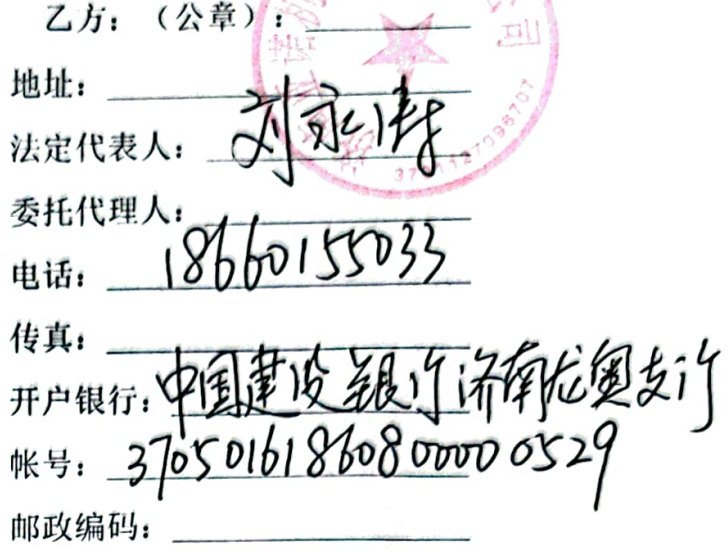 乙方：（公章）：
地址：
法定代表人：刘永涛
委托代理人：
电话：18660155033
传真：
开户银行：中国建设银行济南龙奥支行
帐号：37050161860800000529
邮政编码：